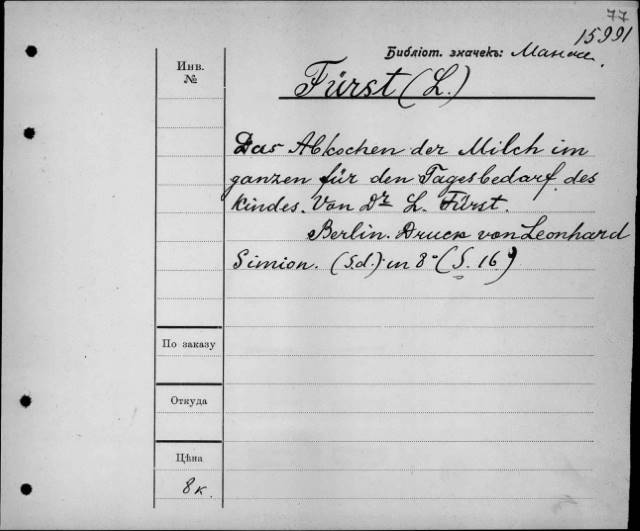 77
15991
Библіот. значекъ:
Инв.
№
Fürst (L.)
Das Abkochen der Milch im
ganzen für den Tagesbedarf des
Kindes. Von Dr L. Fürst.
Berlin. Druck von Leonhard
Simion. (S.d.) in 8° (S. 16)
По заказу
Откуда
Цѣна
8 к.